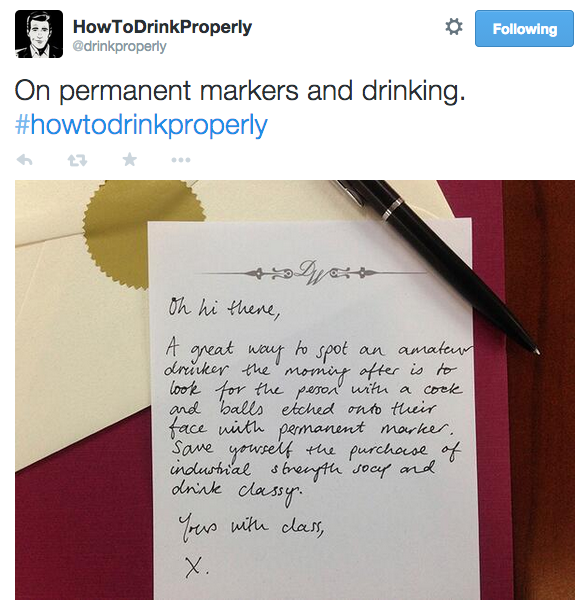 HowToDrinkProperly
@drinkproperly
Following
On permanent markers and drinking.
#howtodrinkproperly
DW
Oh hi there,
A great way to spot an amateur
drinker the morning after is to
look for the person with a cock
and balls etched onto their
face with permanent marker.
Save yourself the purchase of
industrial strength soap and
drink classy.
Yours with class,
X.